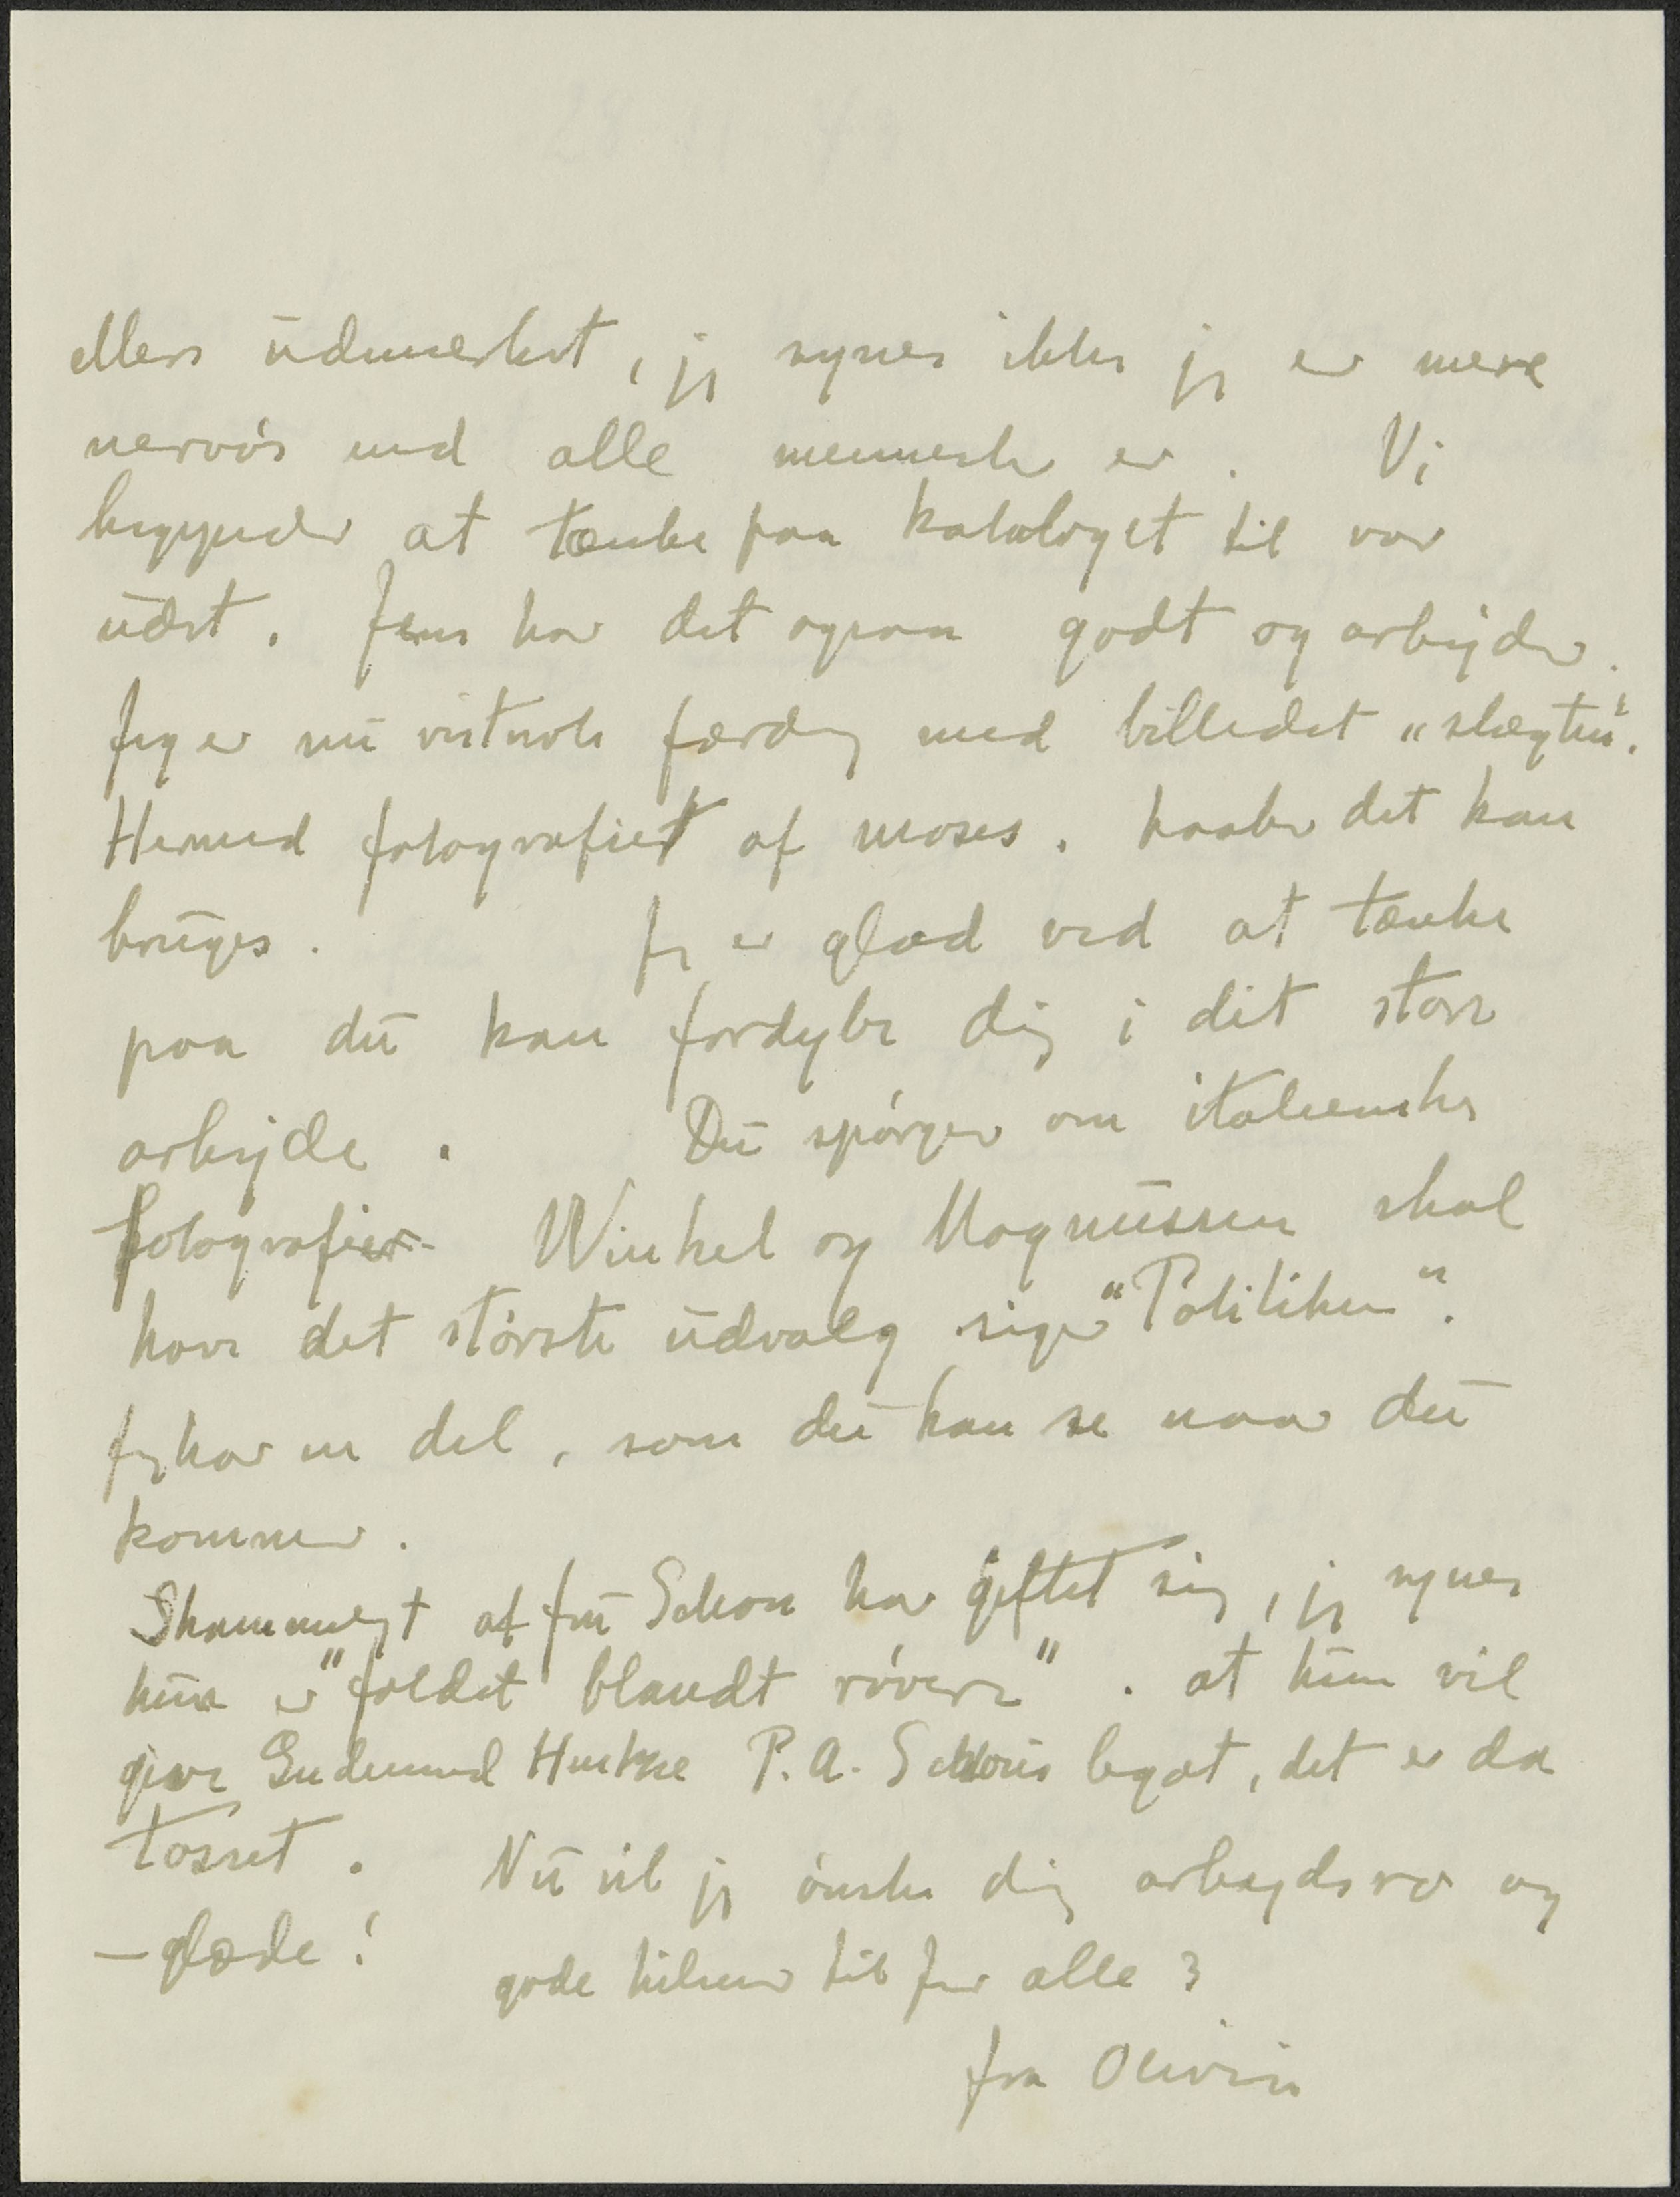 ellers udmerket, jeg synes ikke jeg er mere
nervøs end alle menneske er. Vi
begynder at tænke paa kataloget til vor
udst. Jens har det ogsaa godt og arbejder.
Jeg er nu vistnok færdig med billedet „slægten“.
Hermed fotografiet af moses. haaber det kan
bruges. Jeg er glad ved at tænke
paa du kan fordybe dig i dit store
arbejde. Du spørger om italienske
fotografier Winkel og Magnussen skal
have det største udvalg siger "Politiken".
Jeg har en del, som du kan se naar du
kommer.
Skammeligt at fru Schou har giftet sig, jeg synes
hun er "faldet blandt røvere". at hun vil
give Gudmund Hentze P.A. Schous legat, det er da
tosset. Nu vil jeg ønske dig arbejdsro og
– glæde! gode hilsner til jer alle 3
fra Olivia